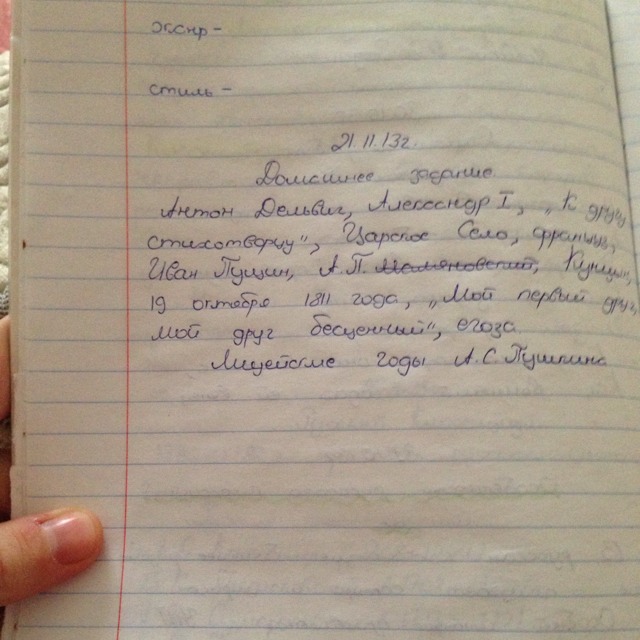 жанр -
стиль -
21.11.13г.
Домашнее задание
Антон Дельвиг, Александр I, „К другу
стихотворцу", Царское Село, француз,
Иван Пущин, А.П. Малиновский, Куницын,
19 октября 1811 года, „Мой первый друг,
мой друг бесценный", егоза
Лицейские годы А.С. Пушкина